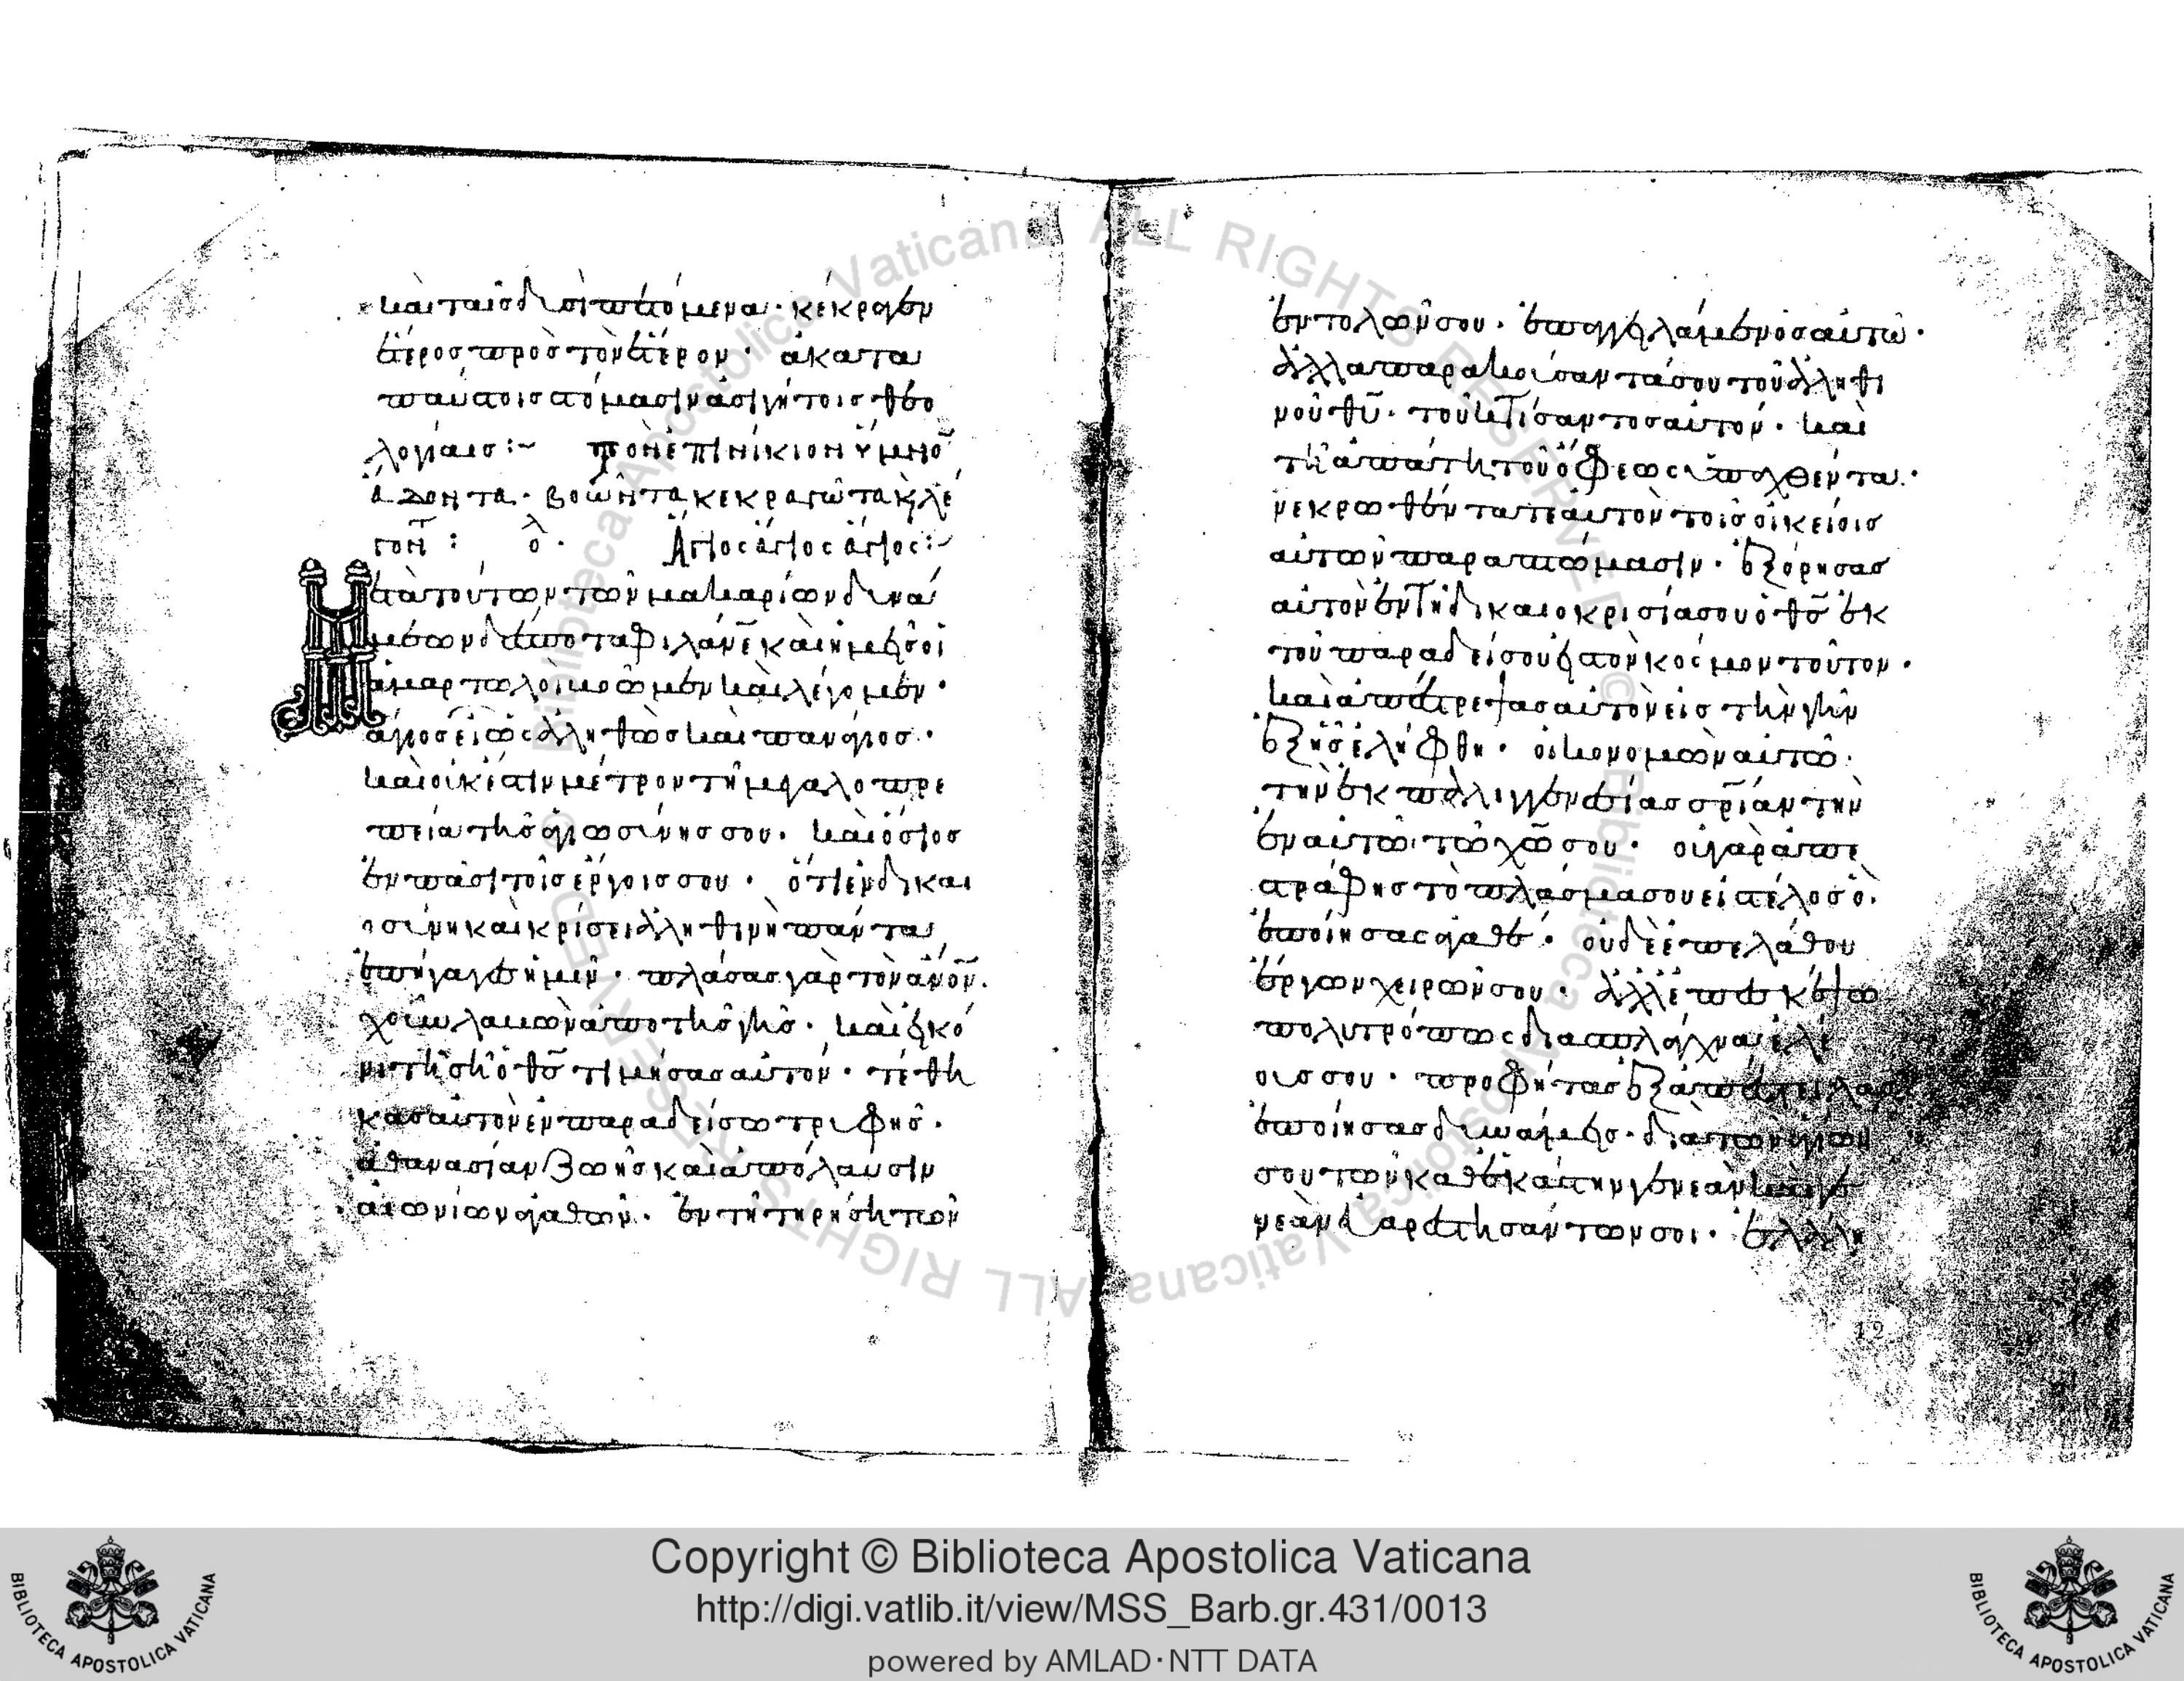 καὶ ταῖς δυσὶ πετόμενα· κέκραγεν
ἕτερος πρὸς τὸν ἕτερον· ἀκατα
παύστοις στόμασιν ἀσιγήτοις θεο
λογίαις :~ Τὸν ἐπινίκιον ὕμνον
ἄδοντα· βοῶντα κεκραγῶτα κ λέ
γοντ : ὁ λ. Ἅγιος ἅγιος ἅγιος :~
Μετὰ τούτων τῶν μακαρίων δυνά
μεων δέσποτα φιλάνε καὶ ἡμεῖς οἱ
ἁμαρτωλοὶ βοῶμεν καὶ λέγομεν·
ἅγιος εἶ ὡς ἀληθῶς καὶ πανάγιος·
καὶ οὐκ ἔστιν μέτρον τῆ μεγαλοπρε
πεία τῆς ἁγιωσύνης σου· καὶ ὅσιος
ἐν πᾶσι τοῖς ἔργοις σου· ὅτι ἐν δικαι
οσύνη καὶ κρίσει ἀληθινὴ πάντα
ἐπήγαγες ἡμῖν· πλάσας γὰρ τὸν ἄνον·
χοῦν λαβὼν ἀπὸ τῆς γῆς· καὶ εἰκό
νι τῆ σῆ ὁ θς τιμήσας αὐτόν· τέθει
κας αὐτὸν ἐν παραδείσω τρυφῆς·
ἀθανασίαν ζωῆς καὶ ἀπόλαυσιν
αἰωνίων ἀγαθῶν· ἐν τῆ τηρήσει τῶν
ἐντολῶν σου· ἐπαγγειλάμενος αὐτῶ·
ἀλλὰ παρακούσαντά σου τοῦ ἀληθι
νοῦ θυ· τοῦ κτίσαντος αὐτόν· καὶ
τῆ ἀπάτη τοῦ ὄφεως ὑπαχθέντα·
νεκρωθέντα τε αὐτὸν τοῖς οἰκείοις
αὐτοῦ παραπτώμασιν· ἐξόρησας
αὐτὸν ἐν τῆ δικαιοκρισία σου ὁ θς ἐκ
τοῦ παραδείσου εἰς τὸν κόσμον τοῦτον·
καὶ ἀπέστρεψας αὐτὸν εἰς τὴν γῆν
ἐξ ἧς ἐλήφθη· οἰκονομῶν αὐτῶ·
τὴν ἐκ παλιγγενεσίας σρίαν τὴν
ἐν αὐτῶ τῶ χω σου· οὐ γὰρ ἀπε
στράφης τὸ πλάσμα σου εἰς τέλος ὃ·
ἐποίησας ἀγαθέ· οὐδὲ ἐπελάθου
ἔργων χειρῶν σου· ἀλλ' ἐπεσκέψω
πολυτρόπως διὰ σπλάγχνα ἐλέ
ους σου· προφήτας ἐξαπέστειλας
ἐποίησας δυνάμεις· διὰ τῶν ἁγίων
σου τῶν καθ' ἑκάστην γενεὰν καὶ γε
νεὰν εὐαρεστησάντων σοι· ἐλάλη
12
Copyright © Biblioteca Apostolica Vaticana
http://digi.vatlib.it/view/MSS_Barb.gr.431/0013
powered by AMLAD·NTT DATA